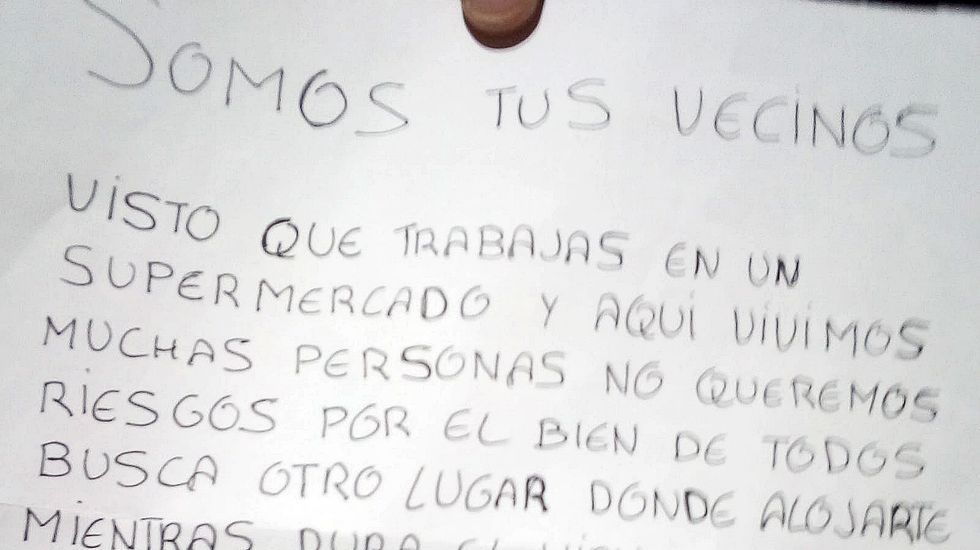 SOMOS TUS VECINOS
VISTO QUE TRABAJAS EN UN
SUPERMERCADO Y AQUÍ VIVIMOS
MUCHAS PERSONAS NO QUEREMOS
RIESGOS POR EL BIEN DE TODOS
BUSCA OTRO LUGAR DONDE ALOJARTE
MIENTRAS DURA